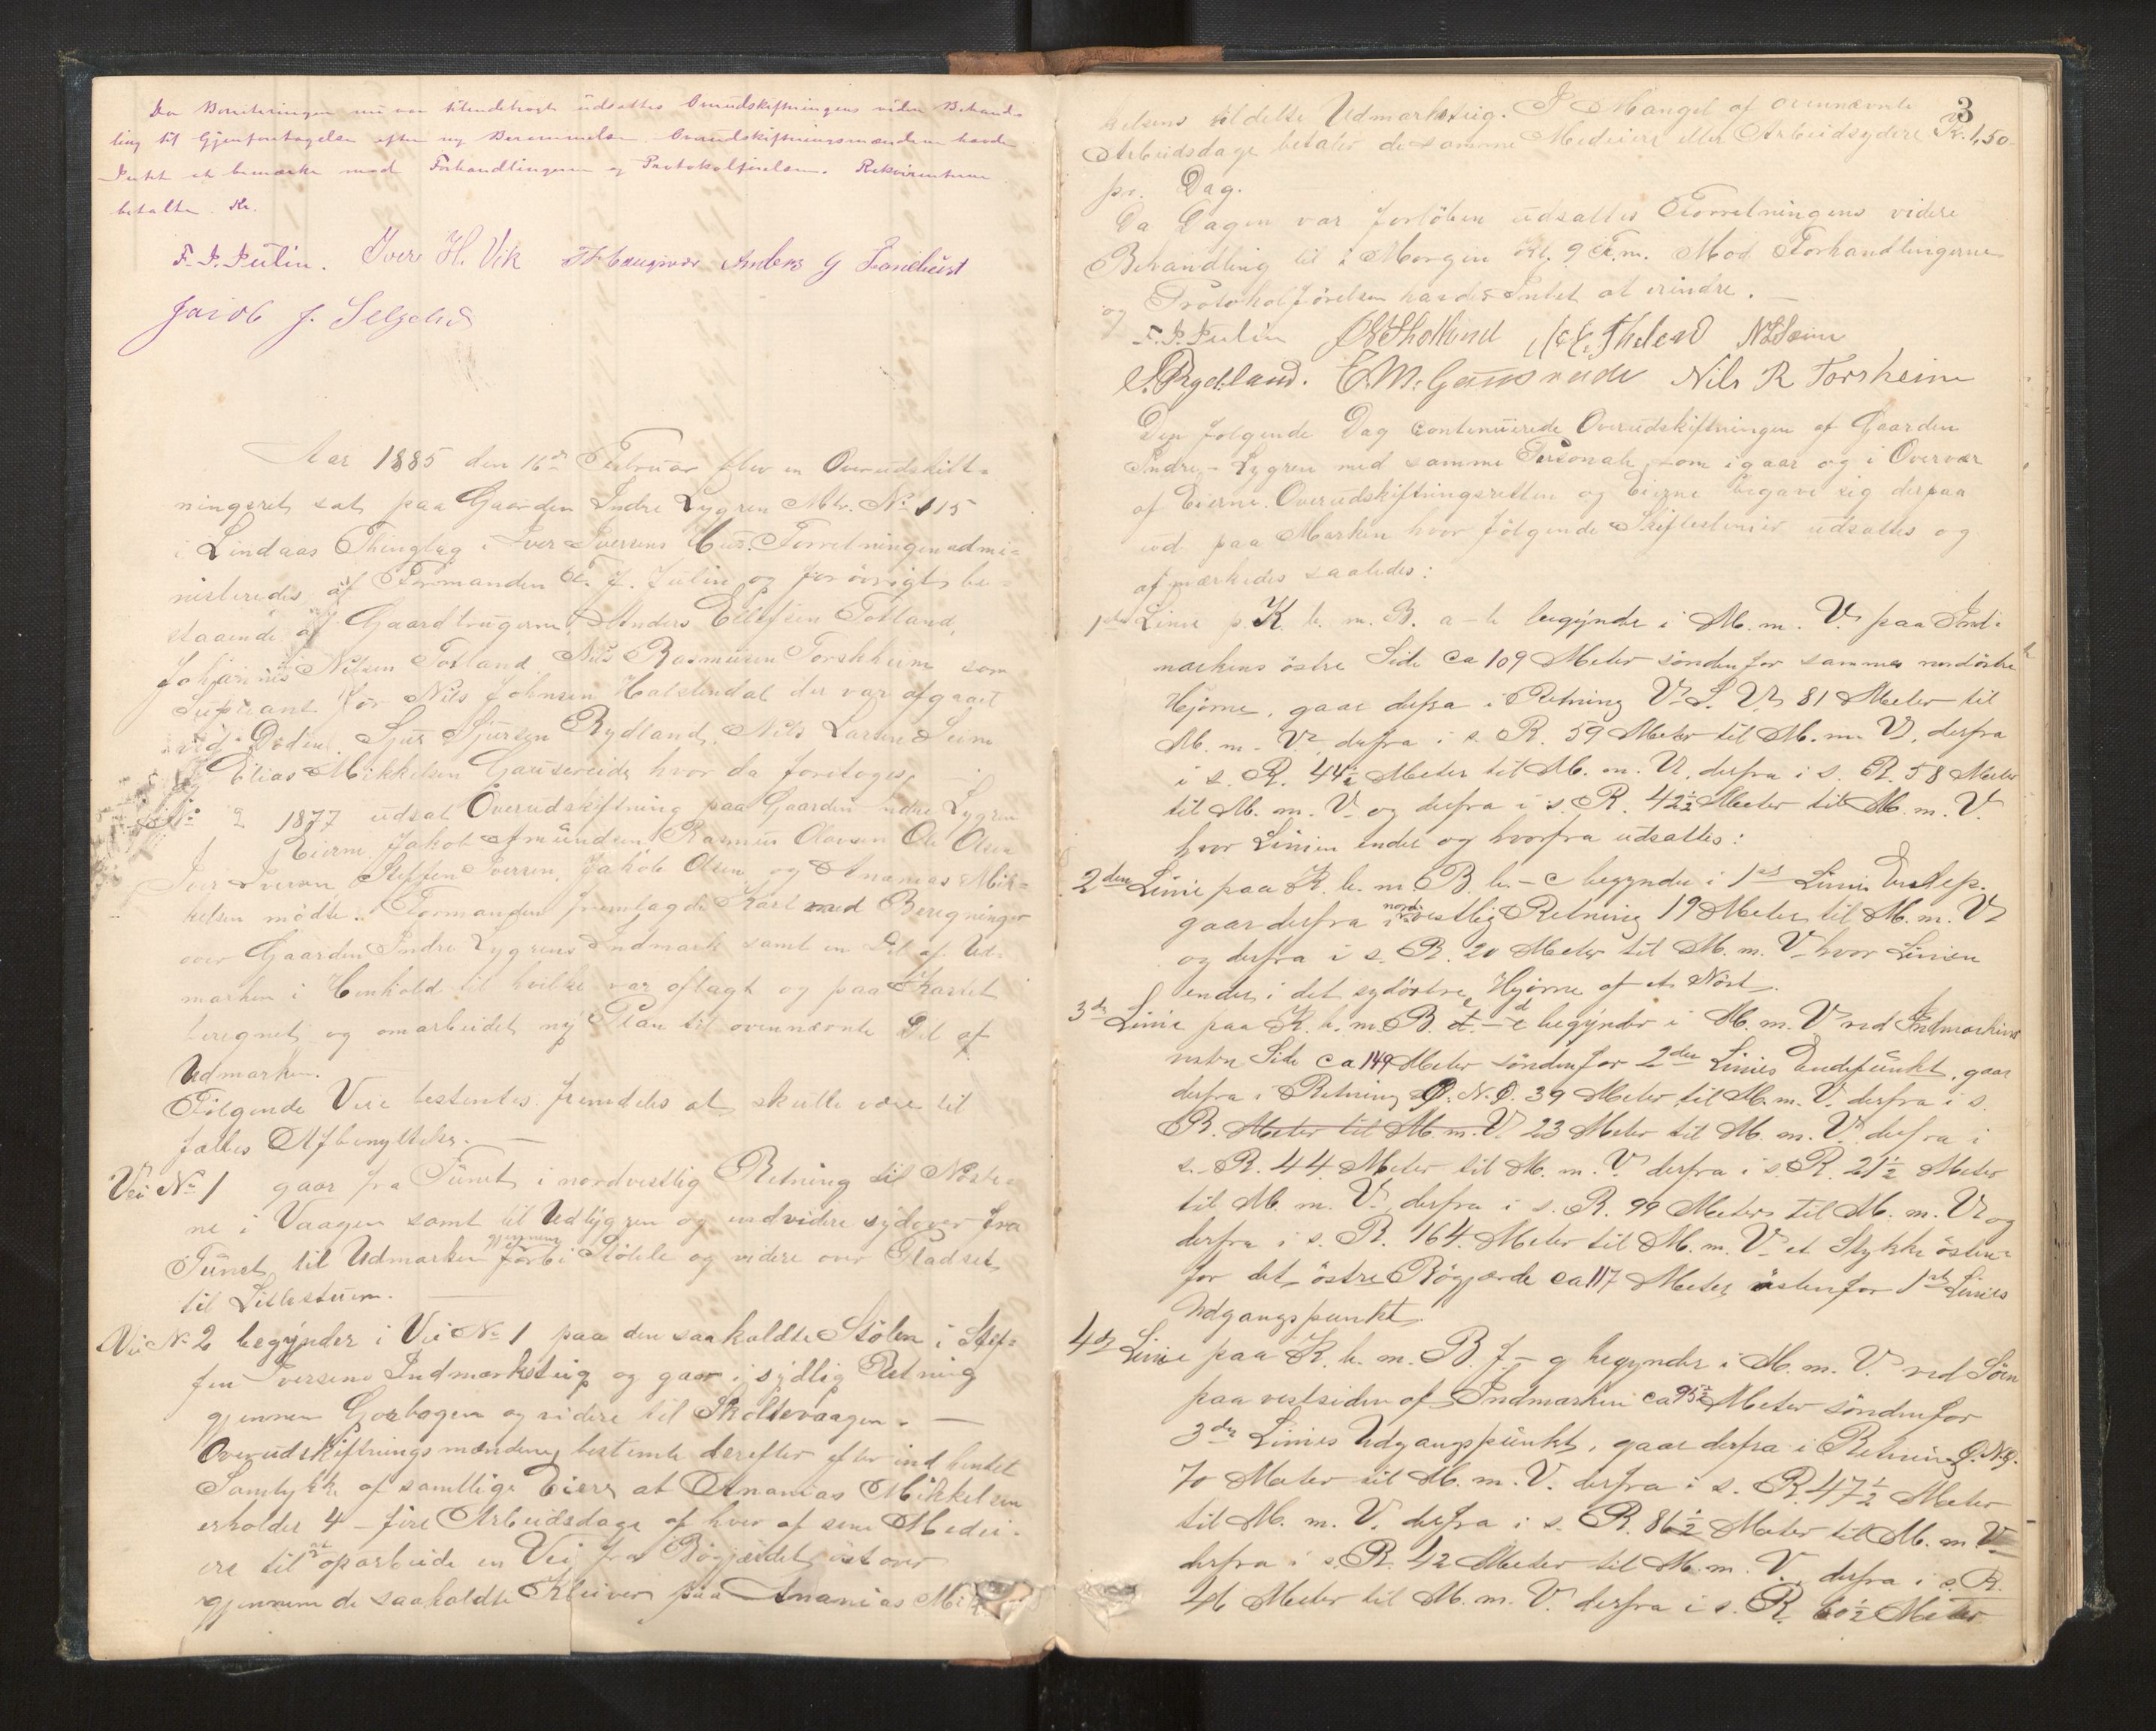 Da Boniteringen nu var tilendebragt udsattes Overudskiftningens videre Behand-
ling til Gjenforetagelse efter ny Berammelse. Overudskiftningsmændene havde
Intet at bemærke mod Forhandlingerne og Protokolførelsen. Rekvirenterne
betalte Kr.
F. J. Julin. Iver H. Vik Anders G
Jacob J.
Aar 1885 den 16de Februar blev en Overudskift-
ningsret sat paa Gaarden Indre Lygren Mtr. No 115
i Lindaas Thinglag i Iver Iversens Hus. Forretningen admi-
nistreredes af Formanden F. J. Julin og forøvrigt be-
staaende af Gaardbrugerne Anders Ellefsen Totland,
Johannes Nilsen Totland, Nils Rasmusen Forshheim som
Supleant for Nils Johnsen Hatstendal der var afgaaet
ved Døden, Sjur Sjursen Rydland, Nils Larsen Seim
og Elias Mikkelsen Gausereide hvor da foretoges
No 2 1877 udsat Overudskiftning paa Gaarden Indre Lygren
Eierne Jakob Amundsen Rasmus Olavsen Ole Olsen
Iver Iversen, Steffen Iversen, Jakob Olsen og Ananias Mik-
kelsen mødte. Formanden fremlagde Kart med Beregninger
over Gaarden Indre Lygrens Indmark samt en Del af Ud-
marken i Henhold til hvilke var aflagt og paa Kartet
beregnet og omarbeidet ny Plan til ovennævnte Del af
Udmarken.
Følgende Veie bestemtes fremdeles at skulle være til
fælles Afbenyttelse. —
Vei No 1 gaar fra Tunet i nordvestlig Retning til Nøste-
ne i Vaagen samt til Udlygren og endvidere sydover fra
Tunet til Udmarken gjennem forbi Stølele og videre over Pladset
til Litlestuen. —
Vei No 2 begynder i Vei No 1 paa den saakaldte Stølen i Stef-
fen Iversens Indmarksteig og gaar i sydlig Retning
gjennem Gjorhagen og videre til Skoltevaagen. —
Overudskiftningsmændene bestemte derefter efter indhentet
Samtykke af samtlige Eiere at Ananias Mikkelsen
erholder 4 - fire Arbeidsdage af hver af sine Medei-
ere til at oparbeide en Vei fra Bøgjærdet østover
gjennem de saakaldte Kleiver paa Ananias Mik
3
kelsens tildelte Udmarksteig. I Mangel af ovennævnte
Arbeidsdage betaler de samme Medeiere eller Arbeidsydere Kr. 1,50
pr. Dag.
Da Dagen var forløben udsattes Forretningens videre
Behandling til i Morgen Kl. 9 F.m. Mod Forhandlingerne
og Protokolførelsen havdes Intet at erindre. —
F. J. Julin NLSeim
S. Rydland. E. M. Gausereide Nils R Forsheim
Den følgende Dag continuerede Overudskiftningen af Gaarden
Indre-Lygren med samme Personale som igaar og i Overvær
af Eierne. Overudskiftningsretten og Eierne begave sig derpaa
ud paa Marken hvor følgende Skiftelinier udsattes og
afmærkedes saaledes:
1ste Linie p. K. b. m. B. a - b begynder i M. m. V. paa Ind-
markens østre Side ca 109 Meter søndenfor sammes nordøstre
Hjørne, gaar derfra i Retning V. S. V. 81 Meter til
M. m. V. derfra i s. R. 59 Meter til M. m. V. derfra
i s. R. 44½ Meter til M. m. V. derfra i s. R. 58 Meter
til M. m. V. og derfra i s. R. 42½ Meter til M. m. V.
hvor Linien ender og hvorfra udsattes:
2den Linie paa K. b. m. B. b - c begynder i 1ste Linies Endep.
gaar derfra i nordvestlig Retning 19 Meter til M. m. V.
og derfra i s. R. 20 Meter til M. m. V. hvor Linien
ender i det sydøstre Hjørne af et Nøst.
3de Linie paa K. b. m. B. c - d begynder i M. m. V. ved Indmarkens
vestre Side ca 149 Meter søndenfor 2den Linies Endepunkt, gaar
derfra i Retning Ø. N. Ø. 39 Meter til M. m. V. derfra i s.
R. Meter til M. m. V. 23 Meter til M. m. V. derfra i
s. R. 44 Meter til M. m. V. derfra i s. R. 21½ Meter
til M. m. V. derfra i s. R. 99 Meter til M. m. V. og
derfra i s. R. 164 Meter til M. m. V. et Stykke østen-
for det østre Bøgjærde ca 117 Meter østenfor 1ste Linies
Udgangspunkt.
4de Linie paa K. b. m. B. f - g begynder i M. m. V. ved Søen
paa vestsiden af Indmarken ca 95½ Meter søndenfor
3die Linies Udgangspunkt, gaar derfra i Retning Ø. N. Ø.
70 Meter til M. m. V. derfra i s. R. 47½ Meter
til M. m. V. derfra i s. R. 86½ Meter til M. m. V.
derfra i s. R. 42 Meter til M. m. V. derfra i s. R.
46 Meter til M. m. V. derfra i s. R. 60½ Meter